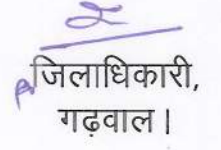 जिलाधिकारी,
गढ़वाल।